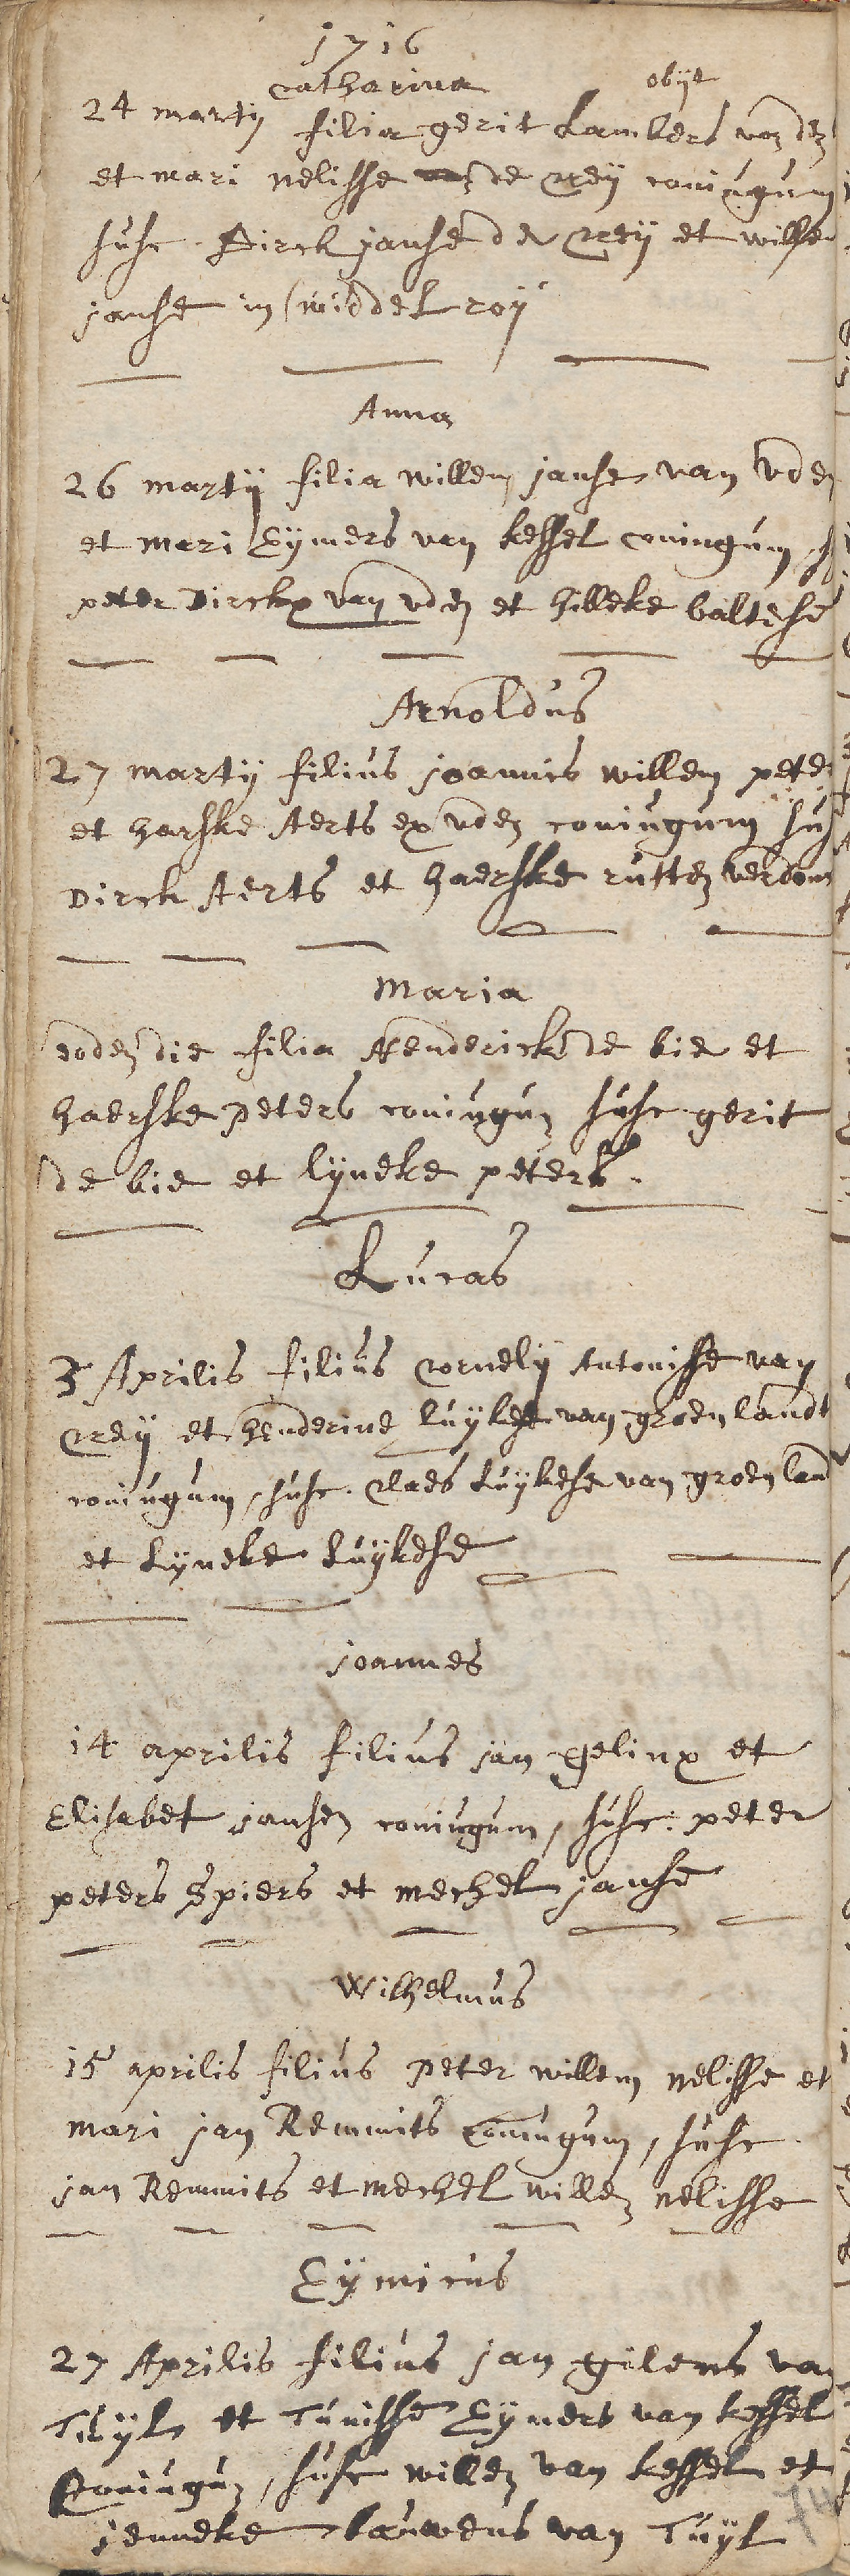 1716
Catharina obijt
24 martij filia gerit Lambers van den
et mari nelisse de reij coniugum
susc. Dirck janse de reij et willem
janse in middelroij
Anna
26 martij filia willem janse van vden
et mari Eijmers van kessel coniugum, s
peter Dirckx van vden et hilleke baltese
Arnoldus
27 martij filius joannis willem peters
et harske Aerts ex vden coniugum sus
Dirck Aerts et haerske rutten verdon
Maria
eodem die filia Henderick de bie et
haerske peters coniugum susc. gerit
de bie et lijneke peters.
Lucas
3 Aprilis filius Cornelij Antonisse van
reij et henderine luijkese van groenlandt
coniugum, susc. Claes Luijkese van groenland
et Lijneke Luijkese
joannes
14 aprilis filius jan gelinx et
Elisabet jansen coniugum, susc: peter
peters Spiers et mechel janse
Wilhelmus
15 aprilis filius peter willem nelisse et
mari jan Remmits coniugum, susc.
jan Remmits et mechel willem nelisse
Eijmicus
27 Aprilis filius jan gilens van
Tuijl et Tunisse Eijmers van kessel
Coniugum, susc willem van kessel et
jenneke bauwens van Tuijl
74